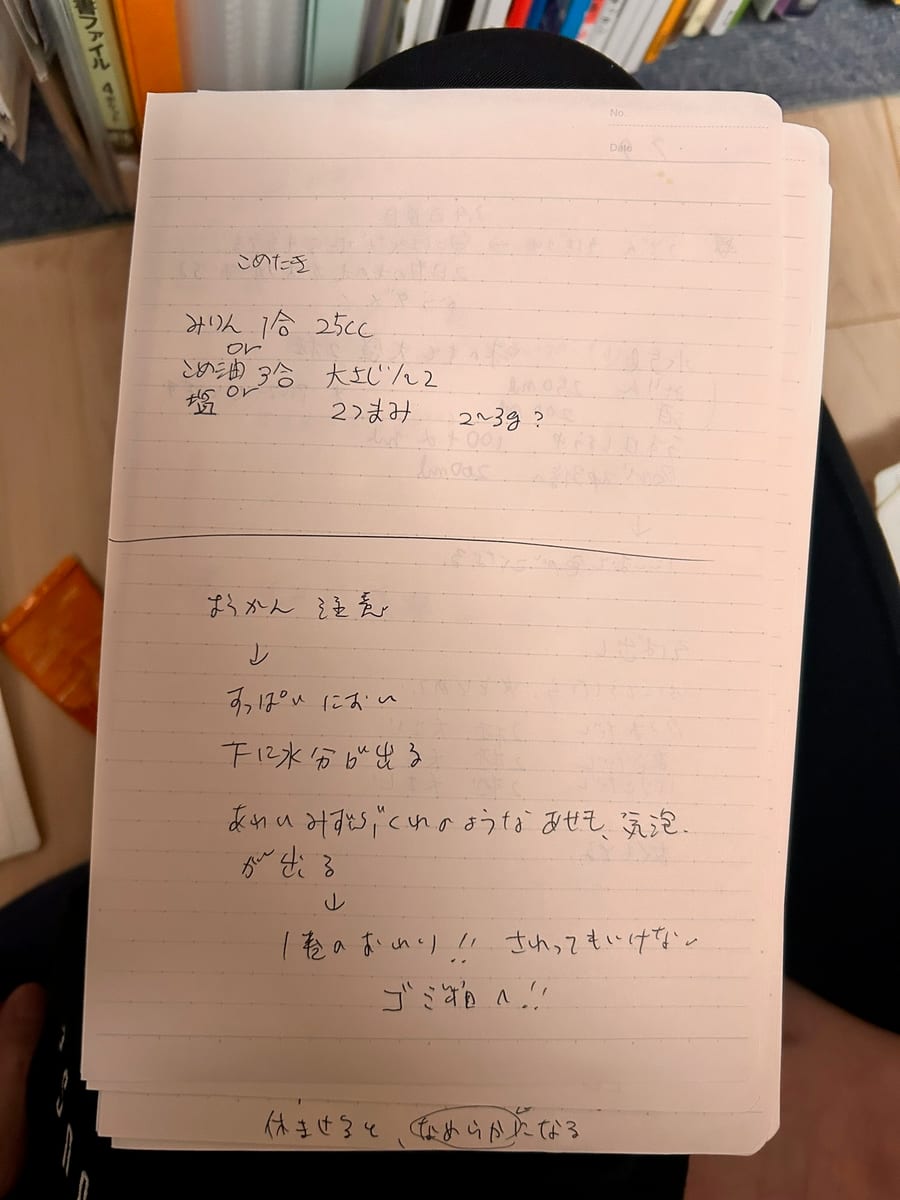 書ファイル
No.
Date
こめたき
みりん 1合 25cc
or
こめ油 3合 大さじ1/2
or
塩 2つまみ 2〜3g?
注意
↓
すっぱい におい
下に水分が出る
のような あせも、気泡
が出る
↓
おわり!! さわってもいけない
ゴミ箱へ!!
休ませると、なめらかになる